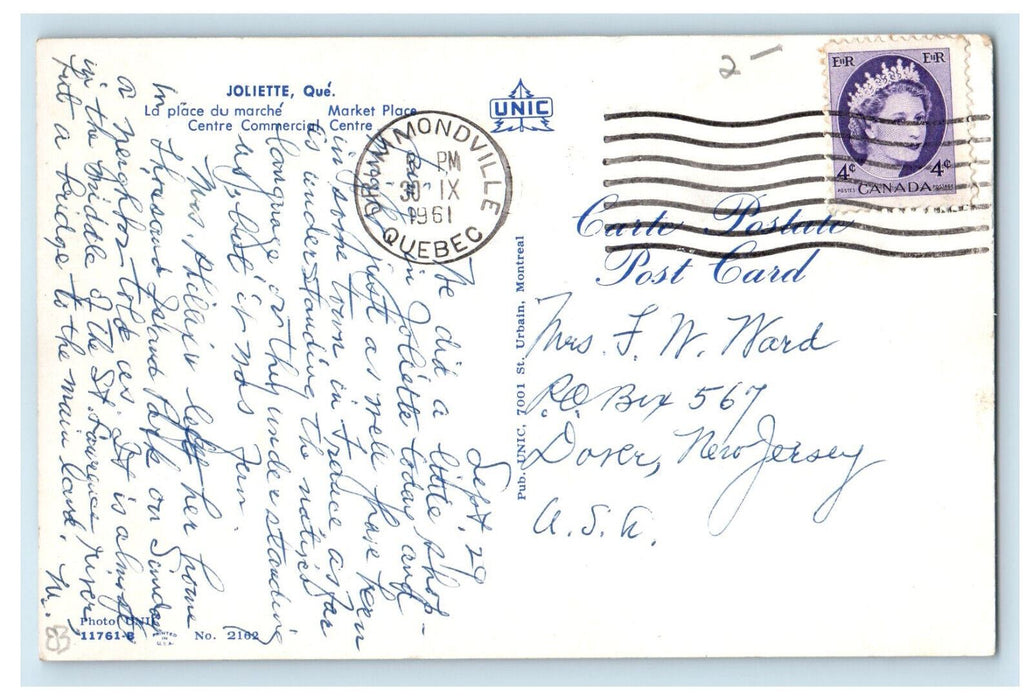 2 -
JOLIETTE, Qué.
La place du marché Market Place
Centre Commercial Centre
UNIC
DRUMMONDVILLE
PM
30 IX
1961
QUEBEC
EIIR EIIR
4¢ 4¢
POSTES CANADA POSTAGE
Carte Postale
Post Card
Sept. 29
We did a little shop-
in Joliette today and
just as well have been
in some town in France as far
as understanding the natives
language or they understanding
us, but it was fun.
Mrs. left her home
in Thousand Island Park on Sunday
a neighbor told us. It is almost
in the middle of the St. Lawrence River,
put a bridge to the main land. M.
Mrs. F. W. Ward
P.O. Box 567
Dover, New Jersey
U.S.A.
Pub. UNIC, 7001 St. Urbain, Montreal
Photo UNIC
11761-B PRINTED IN U.S.A. No. 2162
83